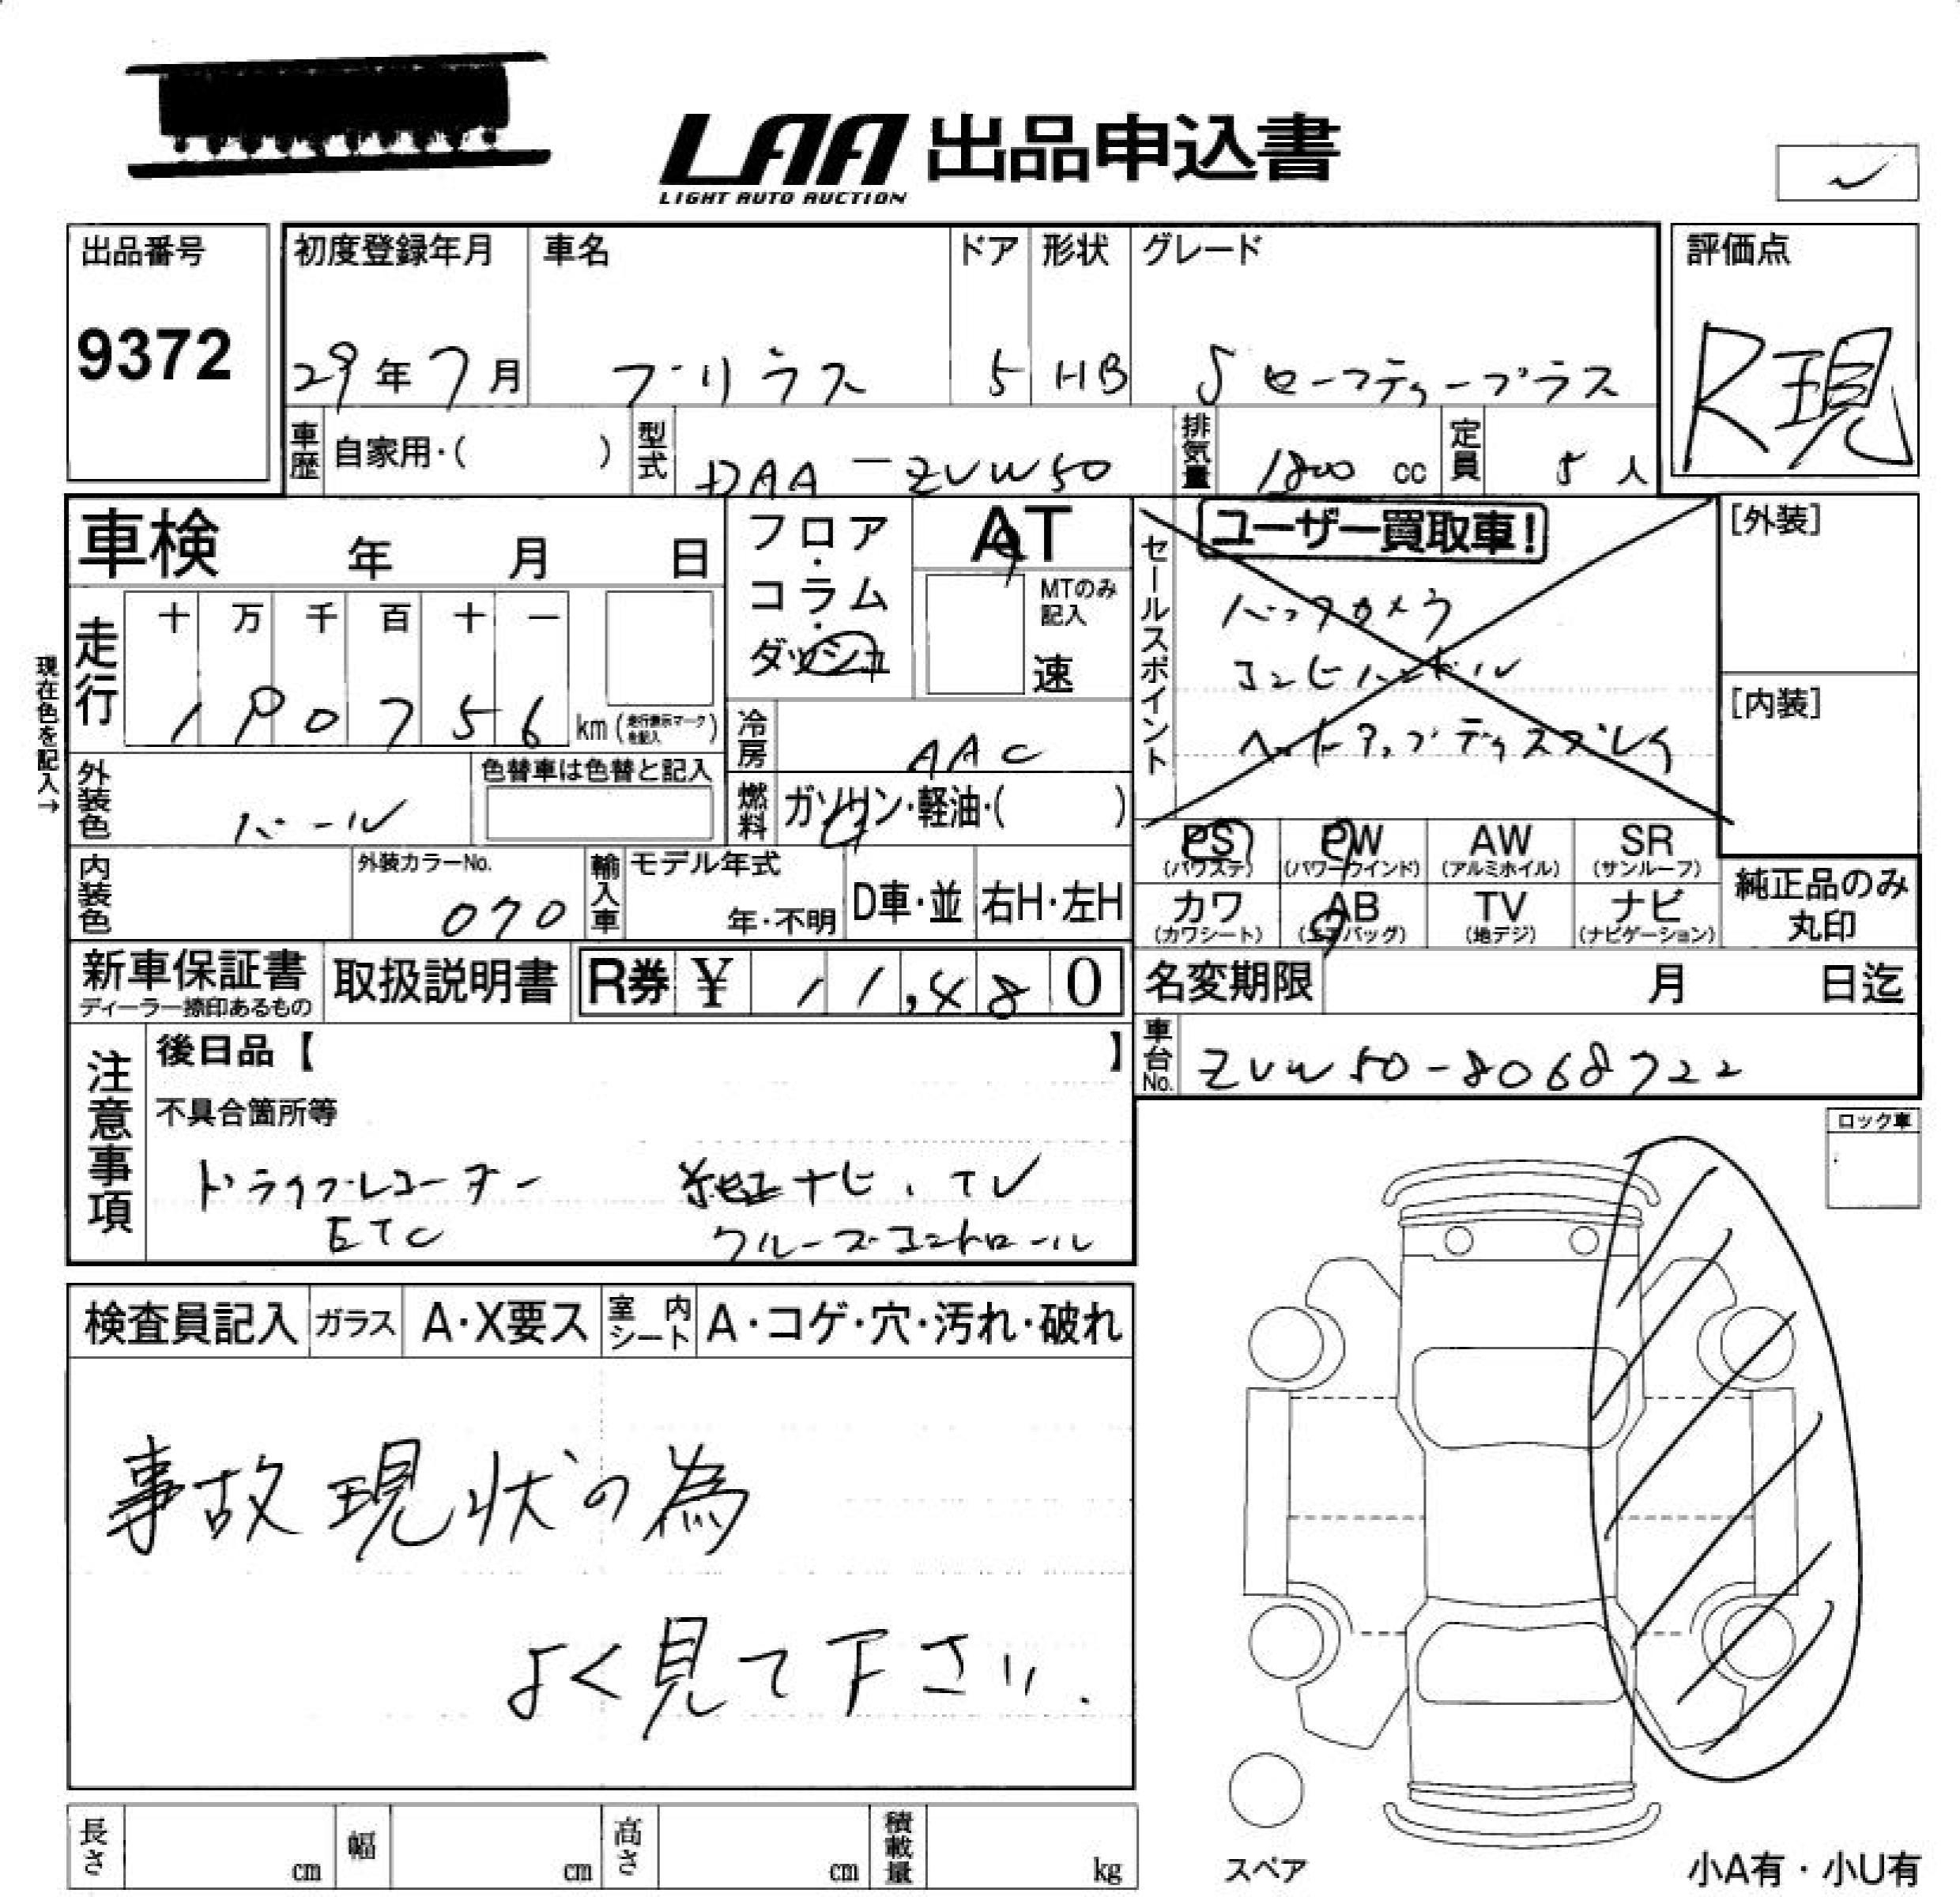 LAA 出品申込書
LIGHT AUTO AUCTION
出品番号
9372
初度登録年月 車名 ドア 形状 グレード
29年7月 プリウス 5 HB Sセーフティープラス
評価点
R現
車歴 自家用・( ) 型式 DAA-ZVW50 排気量 1800 cc 定員 5人
車検 年 月 日
フロア・コラム・ダッシュ
AT
MTのみ記入
速
現在色を記入→
走行 十 万 千 百 十 一
190756 km (走行表示マークを記入)
冷房 AAC
外装色 パール
色替車は色替と記入
燃料 ガソリン・軽油・( )
セールスポイント
ユーザー買取車!
バックカメラ
コンビハンドル
ヘッドアップディスプレイ
[外装]
[内装]
PS (パワステ) PW (パワーウインド) AW (アルミホイル) SR (サンルーフ)
カワ (カワシート) AB (エアバッグ) TV (地デジ) ナビ (ナビゲーション)
純正品のみ丸印
内装色
外装カラーNo. 070
輸入車 モデル年式 年・不明 D車・並 右H・左H
新車保証書
ディーラー捺印あるもの
取扱説明書
R券 ¥ 11,480
名変期限 月 日迄
車台No. ZVW50-8068722
注意事項
後日品【 】
不具合箇所等
ドライブレコーダー 純正ナビ、TV
ETC クルーズコントロール
ロック車
検査員記入 ガラス A・X要ス 室内シート A・コゲ・穴・汚れ・破れ
事故現状の為
よく見て下さい.
長さ cm 幅 cm 高さ cm 積載量 kg
スペア
小A有・小U有